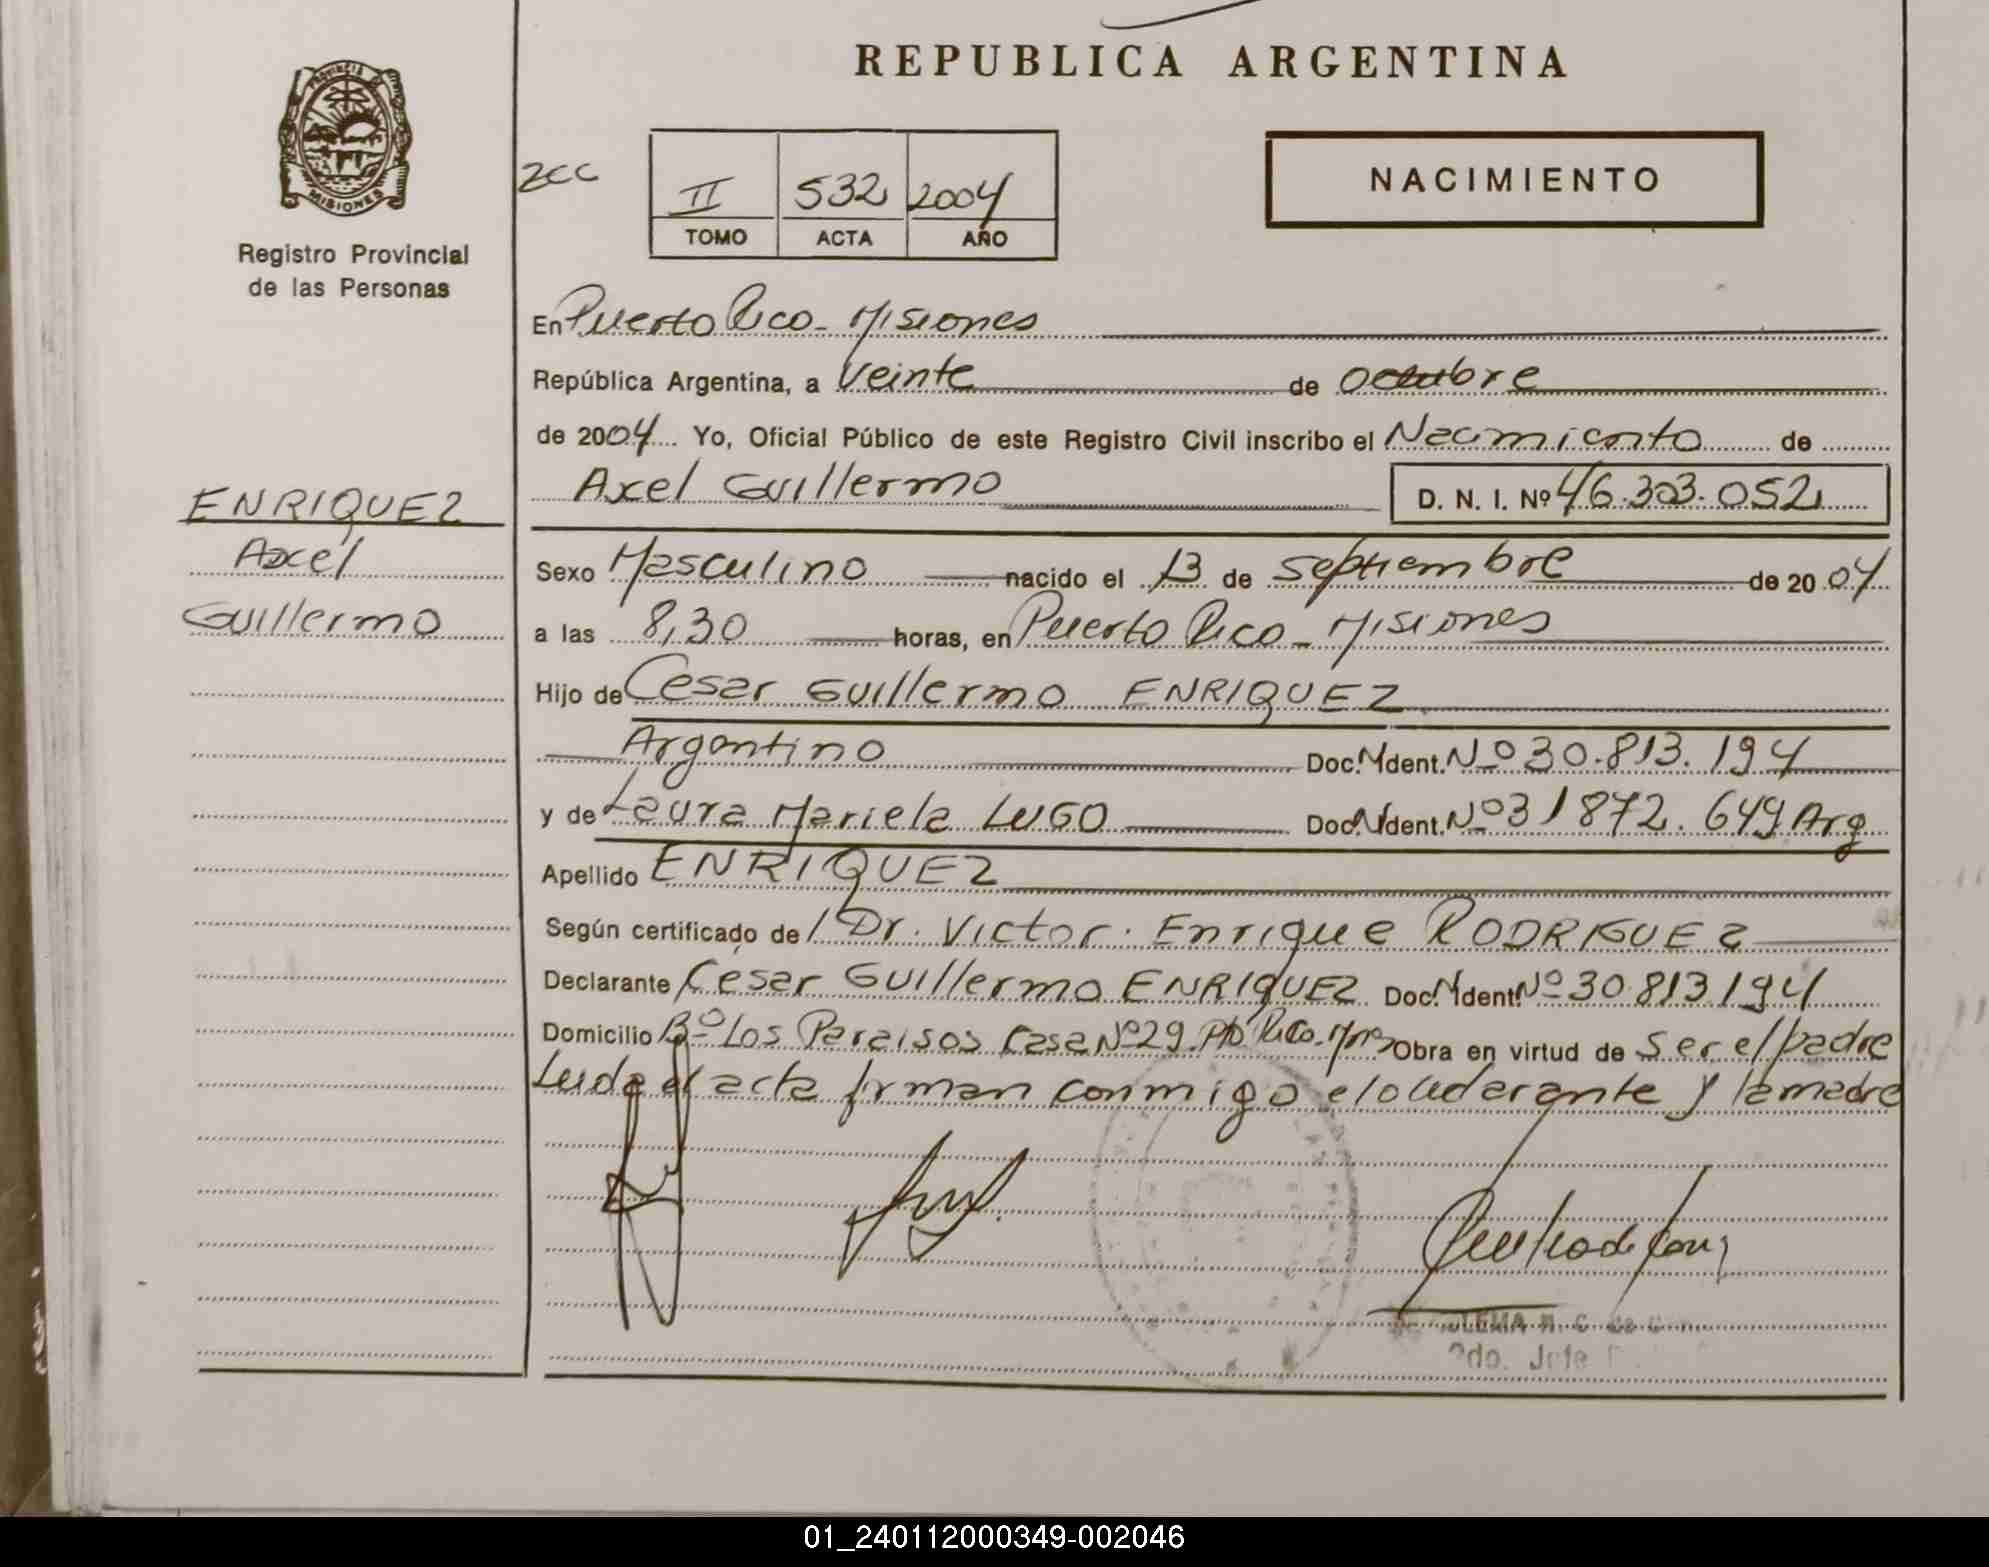 REPUBLICA ARGENTINA
PROVINCIA DE
MISIONES
Registro Provincial
de las Personas
2CC
II 532 2004
TOMO ACTA AÑO
NACIMIENTO
En Puerto Rico - Misiones
República Argentina, a Veinte de Octubre
de 2004 Yo, Oficial Público de este Registro Civil inscribo el Nacimiento de
Axel Guillermo D. N. I. Nº 46.303.052
ENRIQUEZ
Axel
Guillermo
Sexo Masculino nacido el 13 de Septiembre de 20 04
a las 8,30 horas, en Puerto Rico - Misiones
Hijo de Cesar Guillermo ENRIQUEZ
Argentino Doc. Ident. Nº 30.813.194
y de Laura Mariela LUGO Doc. Ident. Nº 31872.649 Arg
Apellido ENRIQUEZ
Según certificado de Dr. Victor Enrique RODRIGUEZ
Declarante Cesar Guillermo ENRIQUEZ Doc. Ident. Nº 30.813.194
Domicilio Bº Los Paraisos Casa Nº 29. Pto Rico. Mnes Obra en virtud de Ser el padre
Leida el acta firman conmigo el declarante y la madre
2do. Jefe
01_240112000349-002046